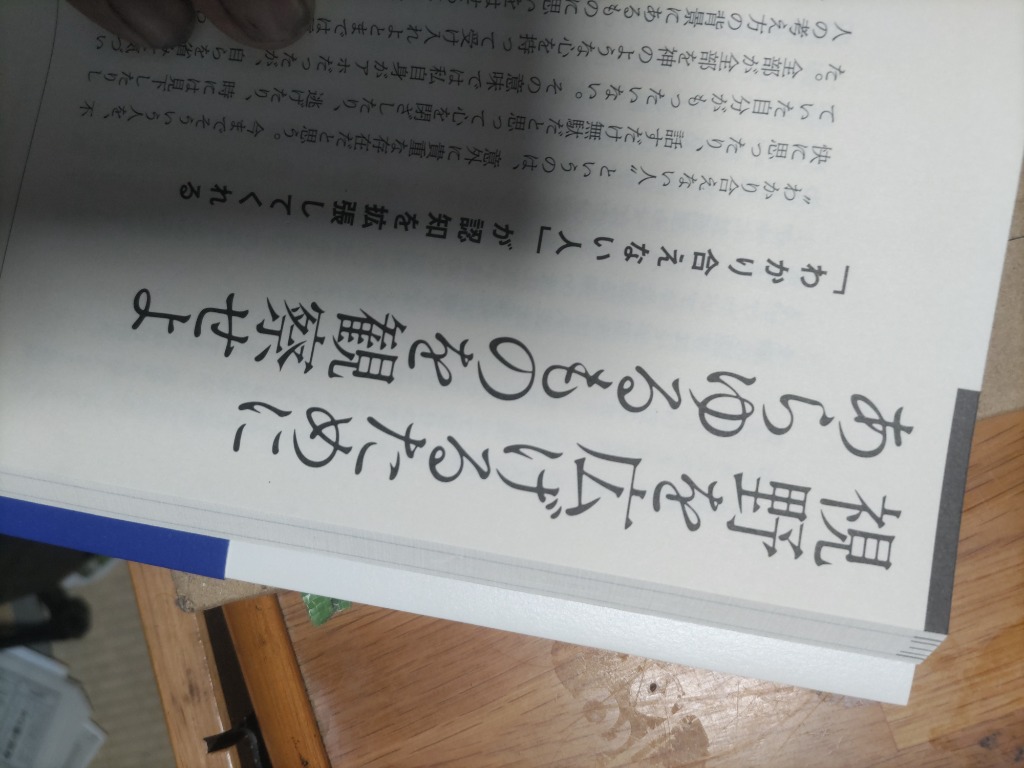 視野を広げるために
あらゆるものを観察せよ
「わかり合えない人」が認知を拡張してくれる
“わかり合えない人”というのは、意外に貴重な存在だと思う。今までそういう人を、不
快に思ったり、話すだけ無駄だと思って心を閉ざしたり、逃げたり、時には見下したりし
ていた自分がもったいない。その意味では私自身がアホだったが、自らを省み
た。全部が全部を神のような心を持って受け入れよとまでは
人の考え方の背景にあるものに思つ